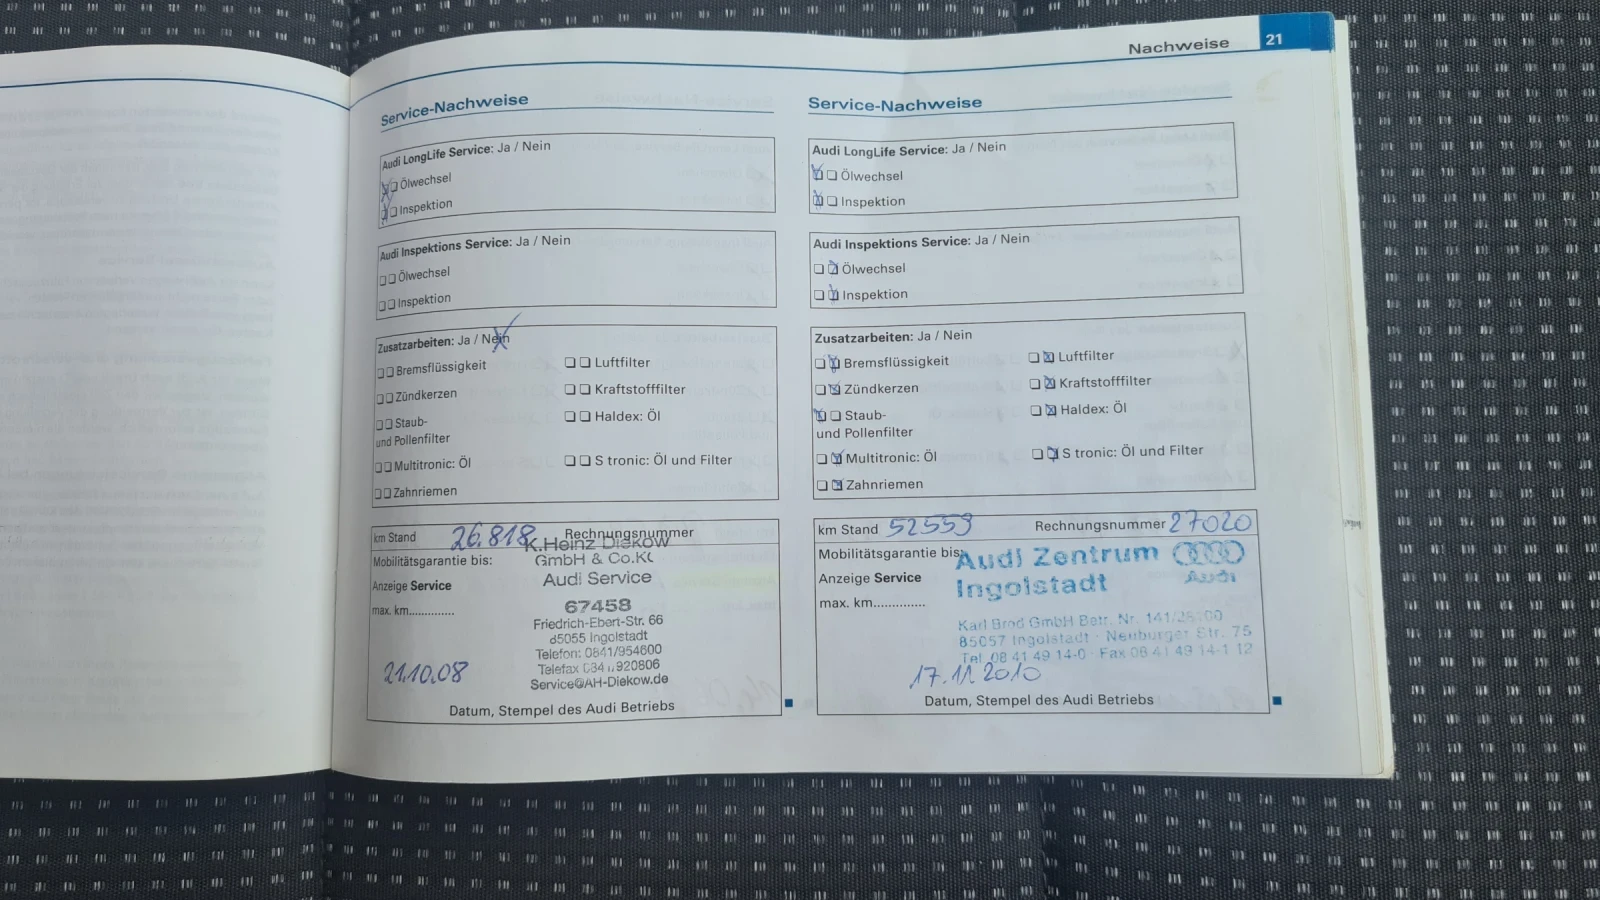 Nachweise 21
Service-Nachweise
Audi LongLife Service: Ja / Nein
Ölwechsel
Inspektion
Audi Inspektions Service: Ja / Nein
Ölwechsel
Inspektion
Zusatzarbeiten: Ja / Nein
Bremsflüssigkeit
Luftfilter
Zündkerzen
Kraftstofffilter
Staub-
und Pollenfilter
Haldex: Öl
Multitronic: Öl
S tronic: Öl und Filter
Zahnriemen
km Stand 26.818 Rechnungsnummer
K.Heinz Diekow
Mobilitätsgarantie bis:
GmbH & Co.KG
Anzeige Service
Audi Service
max. km..............
67458
Friedrich-Ebert-Str. 66
85055 Ingolstadt
Telefon: 0841/954600
Telefax 0841/920806
Service@AH-Diekow.de
21.10.08
Datum, Stempel des Audi Betriebs
Service-Nachweise
Audi LongLife Service: Ja / Nein
Ölwechsel
Inspektion
Audi Inspektions Service: Ja / Nein
Ölwechsel
Inspektion
Zusatzarbeiten: Ja / Nein
Bremsflüssigkeit
Luftfilter
Zündkerzen
Kraftstofffilter
Staub-
und Pollenfilter
Haldex: Öl
Multitronic: Öl
S tronic: Öl und Filter
Zahnriemen
km Stand 52559 Rechnungsnummer 27020
Mobilitätsgarantie bis:
Audi Zentrum
Audi
Anzeige Service
Ingolstadt
max. km.............
Karl Brod GmbH Betr. Nr.
85057 Ingolstadt · Neuburger Str. 75
Tel. 08 41 49 14-0 · Fax 08 41 49 14-1 12
17.11.2010
Datum, Stempel des Audi Betriebs